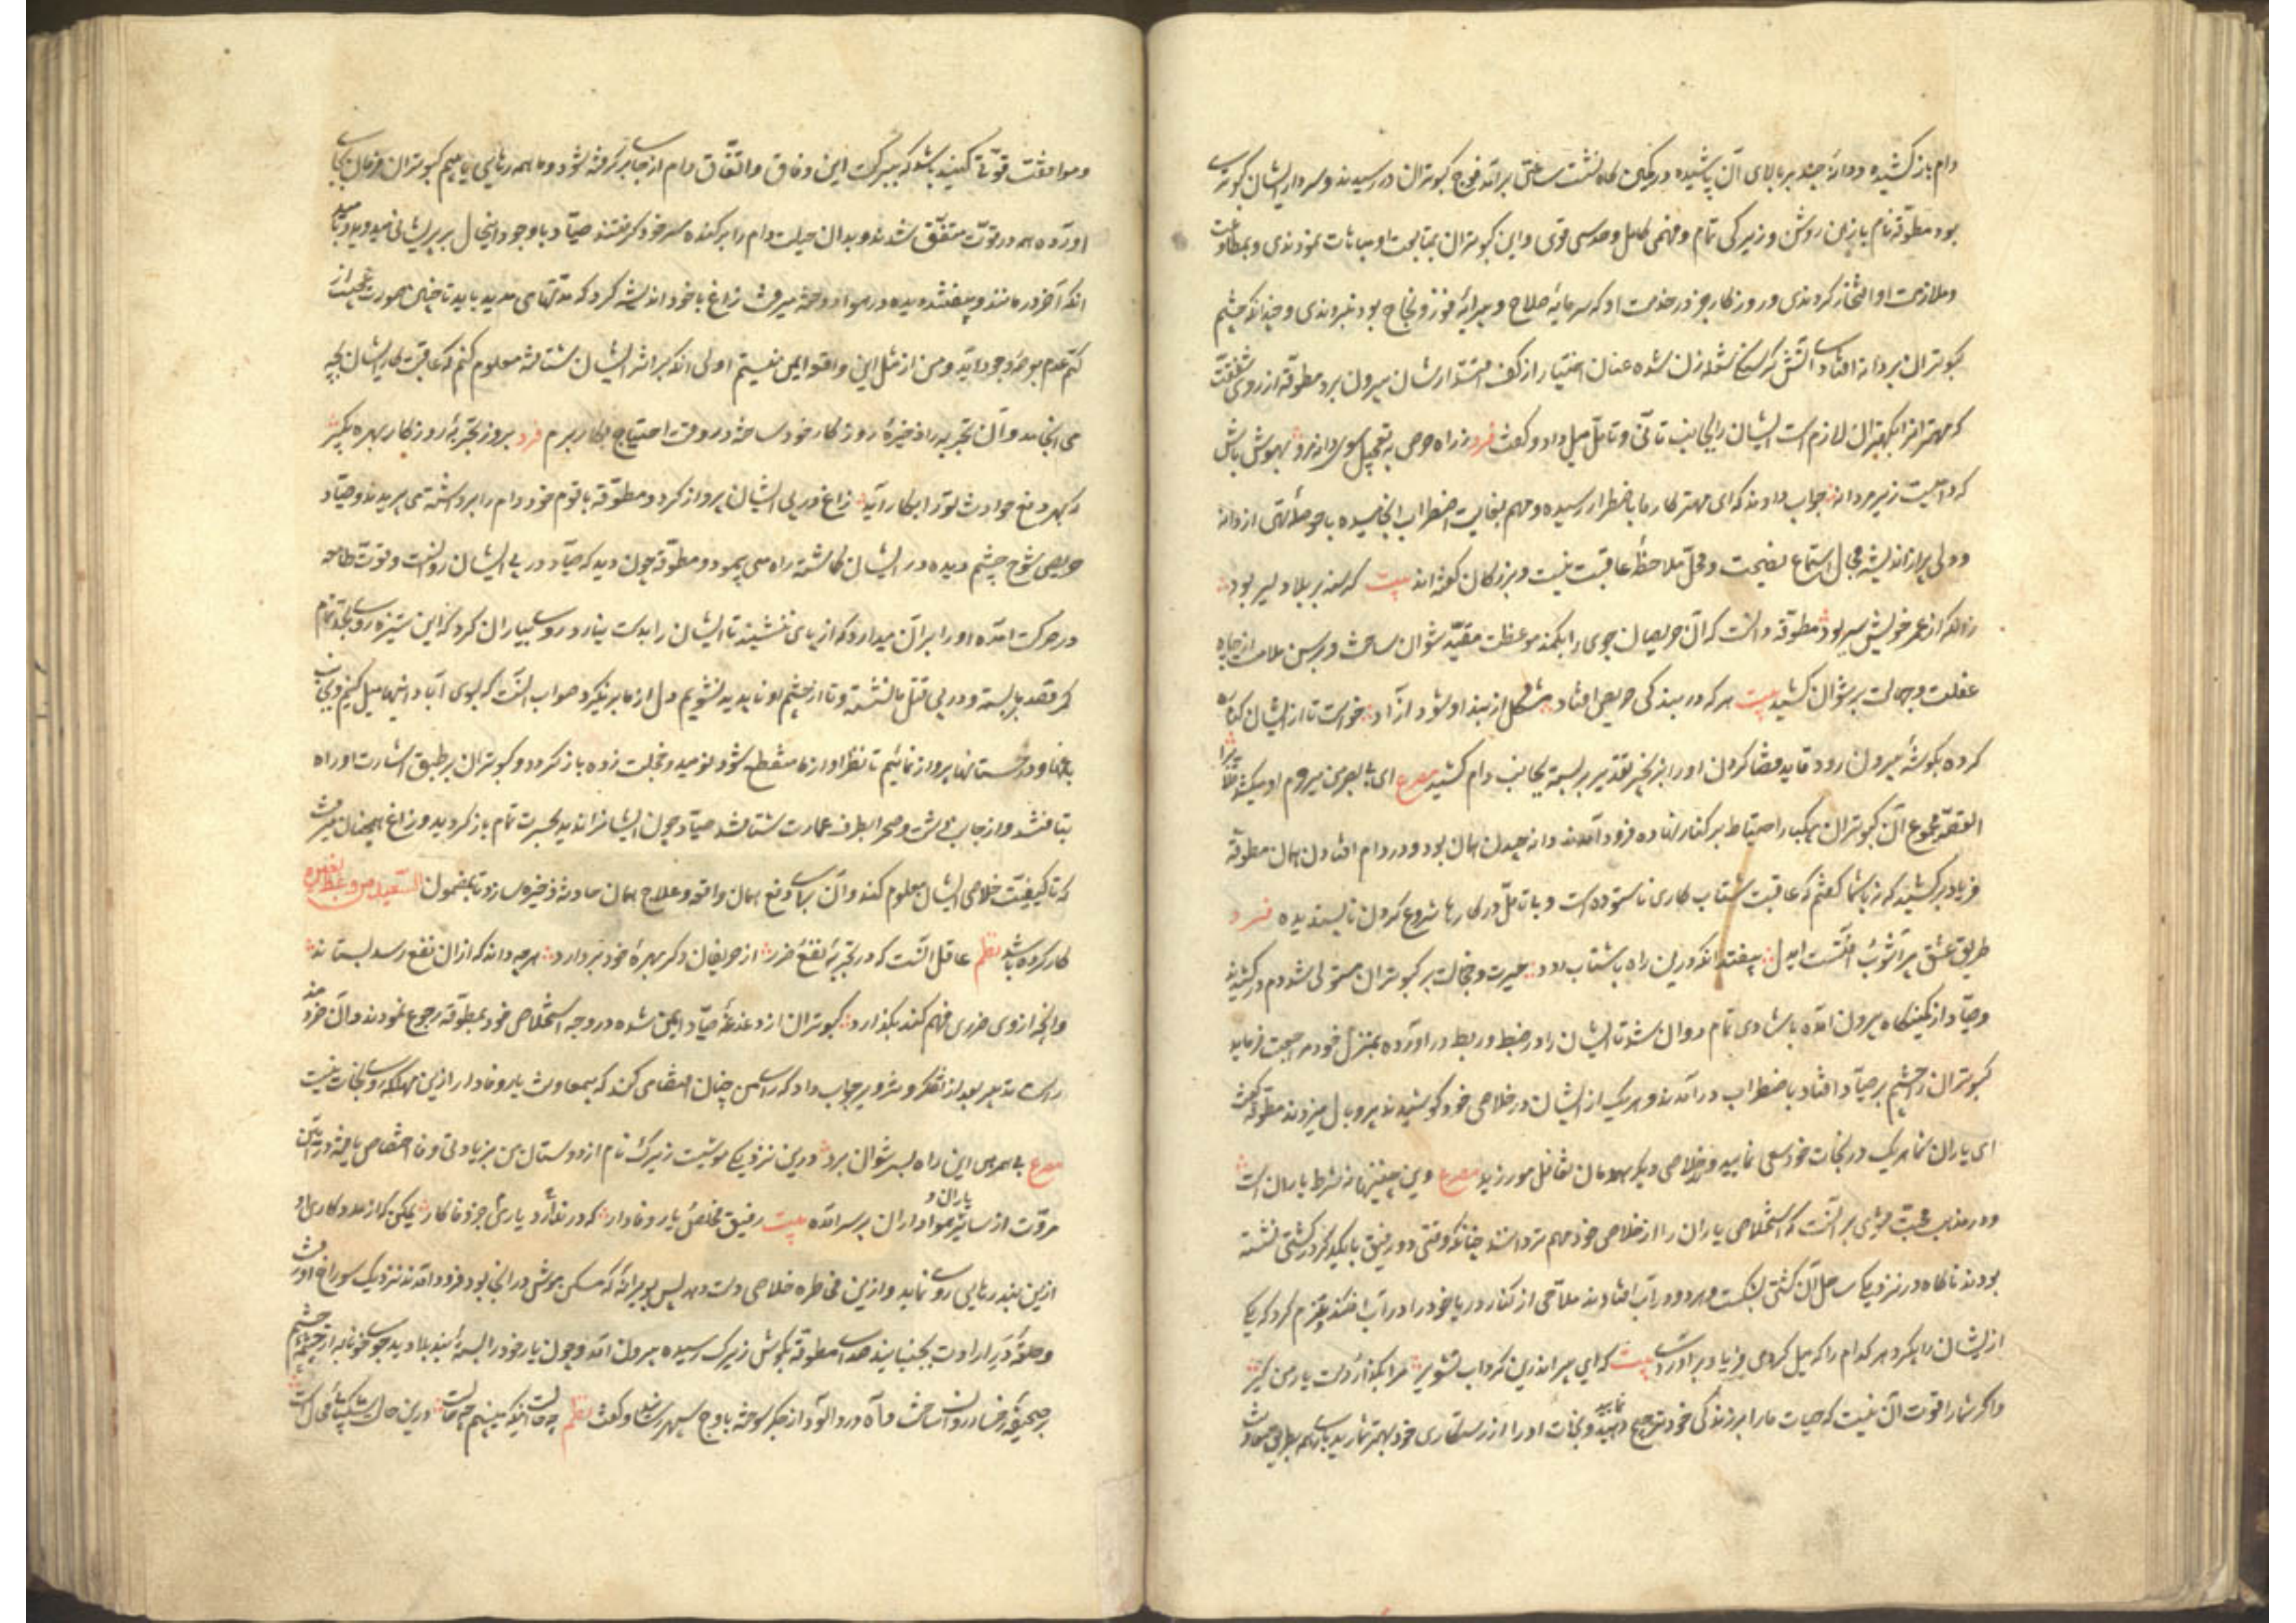 دام باز کشیده و دانهٔ چند بر بالای آن پاشیده در کمین کاه نشست ساعتی برآمد فوج کبوتران در رسیدند و سردار ایشان کبوتری
بود مطوّقه نام با ذهن روشن و زیرکی تمام و فهمی کامل و حدسی قوی و این کبوتران بمتابعت او مباهات نمودندی و بمطاوعت
و ملازمت او افتخار کردندی و روزکار جز در خدمت او که سرمایهٔ صلاح و پیرایهٔ فوز و نجاح بود نبردندی و چندانکه چشم
کبوتران بر دانه افتاد آتش کرسنکی شعله زن شده عنان اختیار از کف اقتدارشان بیرون برد مطوقه از روی شفقت
که مهترانرا بر کهتران لازم است ایشان را بجانب تأنّی و تامّل میل داد و کفت فرد ز راه حرص به تعجیل سوی دانه مرو بهوش باش
که دامیست زیر هر دانه جواب دادند که ای مهتر کار ما باضطرار رسیده و مهم بغایت اضطراب انجامیده با حوصلهٔ تهی از دانه
و دلی پر از اندیشه مجال استماع نصیحت و محل ملاحظهٔ عاقبت نیست و بزرکان کفته اند بیت کرسنه بر بلا دلیر بود
زانکه از عمر خویش سیر بود مطوقه دانست که آن حریصان جوی را بکمند موعظت مقیّد نتوان ساخت و برسن ملامت از چاه
غفلت و جهالت بر نتوان کشید بیت هر که در بند کی حرص افتاد مشکل از بند او شود آزاد خواست تا از ایشان کناره
کرده بکوشهٔ بیرون رود قاید قضا کردن او را بزنجیر تقدیر بر بسته بجانب دام کشید مصرع
القصّه مجموع آن کبوتران بیکبار احتیاط بر کنار نهاده فرود آمدند دانه چیدن همان بود و در دام افتادن همان مطوقه
فریاد برکشید که نه با شما کفتم که عاقبت شتاب کاری ناستوده است و بی تامّل در کارها شروع کردن ناپسندیده فرد
طریق عشق پر آشوب و آفتست ای دل بیفتد آنکه درین راه با شتاب رود حیرت و خجالت بر کبوتران مستولی شد دم در کشیدند
و صیّاد از کمینکاه بیرون آمده با شادی تمام دوان شد تا ایشان را در ضبط و ربط در آورده بمنزل خود مراجعت فرماید
کبوتران را چشم بر صیّاد افتاد باضطراب درآمدند و هر یک از ایشان در خلاصی خود کوشیدند پر و بال میزدند مطوقه کفت
ای یاران شما هر یک در نجات خود سعی نمایید و خلاصی دیکر همدمان تغافل مورزید مصرع وین چنینها نه شرط یاران است
و در مذهب محبّت فتوای بر آنست که استخلاص یاران را از خلاصی خود مهم تر دانند چنانکه وقتی دو رفیق با یکدیکر در کشتی نشسته
بودند ناکاه در نزدیک ساحل آن کشتی بشکست و هر دو در آب افتادند ملّاحی از کنار دریا خود را در آب افکند و عزم کرد که یکی
از ایشان را بکیرد هر کدام را که میل کردی فریاد بر آوردی بیت که ای پیر اندرین کرداب تشویر مرا بکذار دست یار من کیر
و اکر شما را قوت آن نیست که حیات یار را بر زندکی خود ترجیح نمایید و نجات او را از رستکاری خود بهتر شمارید باری همه بطریق معاونت
و موافقت قوّتی کنید باشد که ببرکت این وفاق و اتّفاق دام از جای برکرفته شود و ما همه رهایی یابیم کبوتران فرمان بجای
آورده همه در قوت متفّق شدند و بدان حیلت دام را برکنده سر خود کرفتند صیّاد با وجود اینحال بر پی ایشان میدوید و بامید
آنکه آخر در مانند و بیفتند دیده در هوا دوخته میرفت زاغ با خود اندیشه کرد که مدّتهای مدید باید تا چنین صورت عجیب از
کتم عدم بعرصهٔ وجود آید و من از مثل این واقعه ایمن نیستم اولی آنکه بر اثر ایشان شتافته معلوم کنم که عاقبت کار ایشان بچه
می انجامد و آن تجربه را ذخیرهٔ روزکار خود ساخته در وقت احتیاج بکار برم فرد بروز تجربهٔ روزکار بهره بکیر
که بهر دفع حوادث ترا بکار آید زاغ در پی ایشان پرواز کرد و مطوّقه با قوم خود دام را برداشته می پریدند و صیّاد
حریص شوخ چشم دیده در ایشان کاشته راه می پیمود و مطوّقه چون دید که صیّاد در پی ایشان روانست و قوّت طامعه
در حرکت آمده او را بر آن میدارد که از پای ننشیند تا ایشان را بدست نیارد روی بیاران کرد که این ستیزه روی بجدّ تمام
کمر قصد ما بسته و در پی قتل ما نشسته و تا از چشم او ناپدید نشویم دل از ما برنکیرد صواب آنست که بسوی آبادانیها میل کنیم و بجانب
باغها و درختستانها پرواز نمائیم تا نظر او از ما منقطع شود نومید و خجلت زده باز کردد و کبوتران بر طبق اشارت او راه
بتافتند و از جانب دشت و صحرا بطرف عمارت شتافتند صیّاد چون ایشانرا ندید بحسرت تمام باز کردید و زاغ همچنان میرفت
که تا کیفیّت خلاصی ایشان معلوم کند و آن را برای دفع همان واقعه و علاج همان حادثه ذخیره سازد تا بمضمون السّعید من وعظ بغیره
کار کرده باشد نظم عاقل آنست که در تجربهٔ نفع و ضرر از حریفان دکر بهرهٔ خود بردارد هر چه داند که ازان نفع رسد بستاند
و آنچه از وی ضرری فهم کند بکذارد کبوتران از دغدغهٔ صیّاد ایمن شده در وجه استخلاص خود بمطوّقه رجوع نمودند و آن خردمند
راست تدبیر بعد از تفکّر و تدویر جواب داد که رای من چنان اقتضا می کند که بی معاونت یار وفادار ازین مهلکه روی نجات نیست
مصرع بی همرهی این راه بسر نتوان برد درین نزدیکی موشیست زیرک نام از دوستان من بزیادتی وفا اختصاص یافته و در آیین
مروّت از سایر یاران و هواداران بر سر آمده بیت رفیق مخلص و یار وفادار که در نفزاید یاری جز وفا کار یمکن که از مددکاری او
ازین بند رهایی روی نماید و ازین مخاطره خلاصی دست دهد پس بویرانهٔ که مسکن موش در آنجا بود فرود آمدند نزدیک سوراخ او رفت
و حلقهٔ در ارادت بجنبانید صدای مطوقه بکوش زیرک رسیده بیرون آمد و چون یار خود را بستهٔ بند بلا دید جوی خونابه از چشمهٔ چشم
بر صحیفهٔ رخسار روان ساخت و آه درد آلود از جکر سوخته باوج سپهر رسانید و کفت نظم چه حالست اینکه می بینم چه حالست درین حال شکیبائی محالست